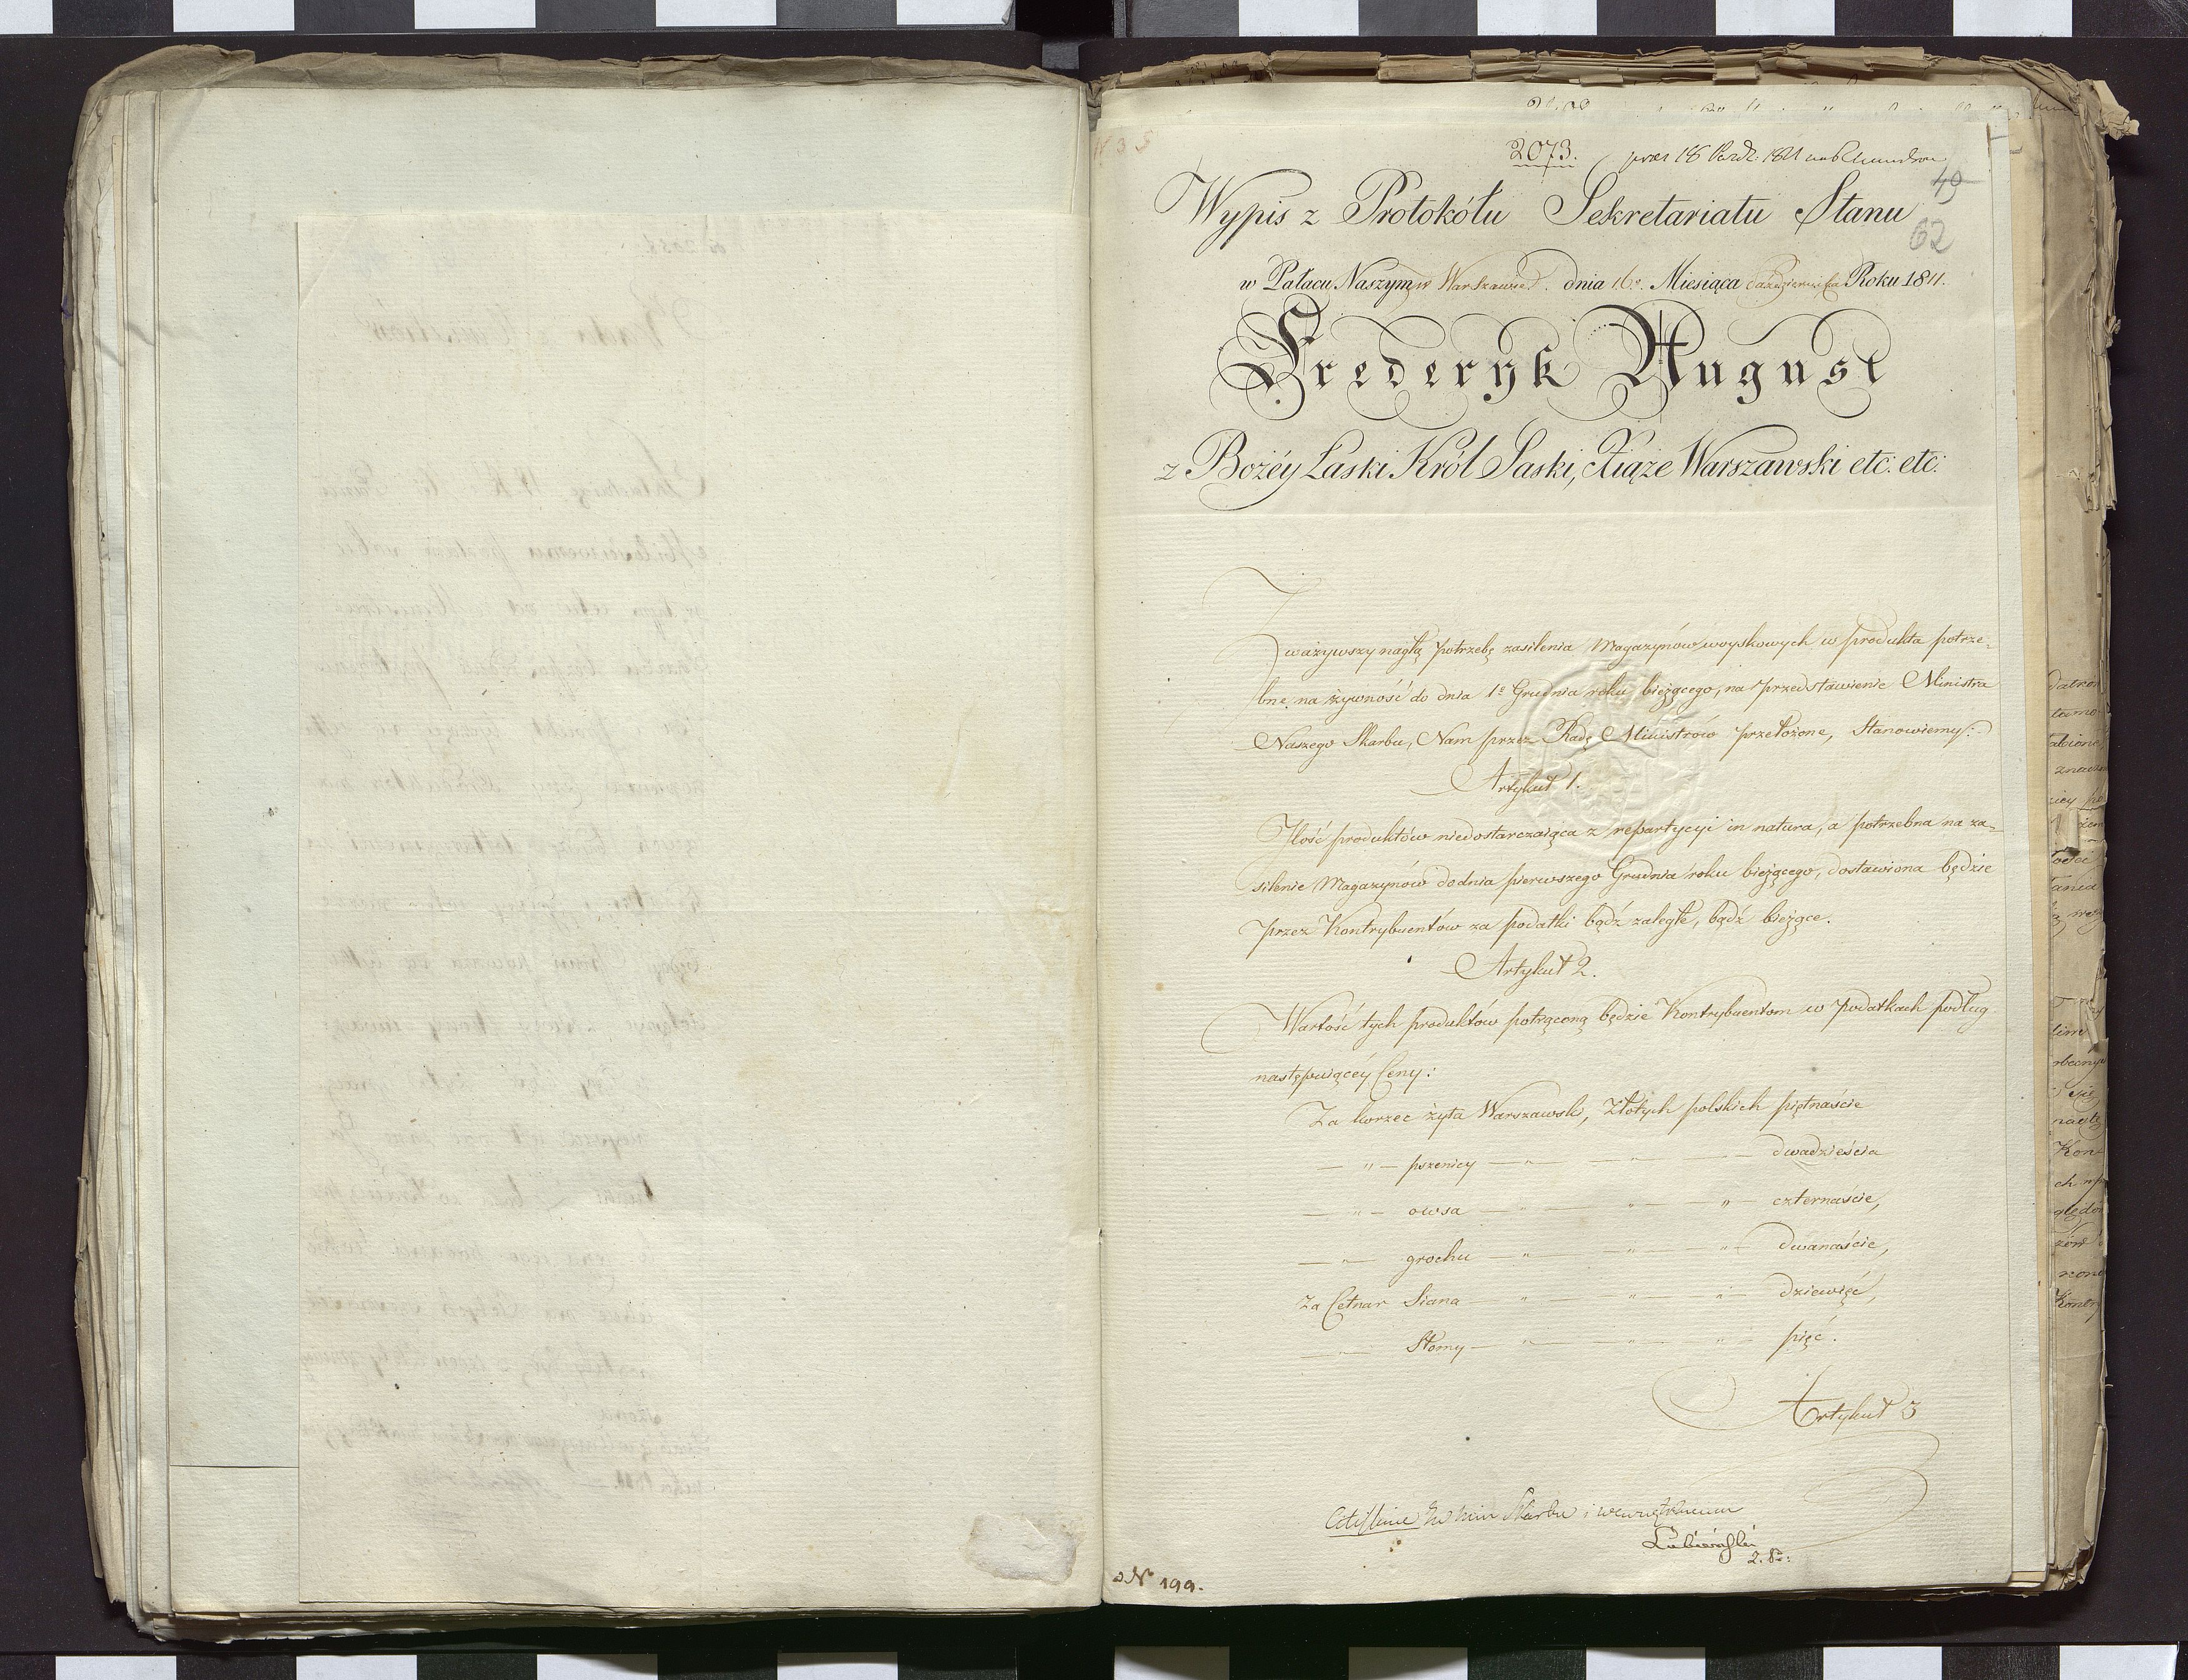 2073.
49
62
Wypis z Protokółu Sekretariatu Stanu
w Pałacu Naszym w Warszawie dnia 16º Miesiąca Października Roku 1811.
Frederyk August
z Bożéy Łaski Król Saski, Xiąże Warszawski etc: etc:
Zważywszy nagłą potrzebę zasilenia Magazynów woyskowych w produkta potrze-
bne na żywność do dnia 1º Grudnia roku bieżącego, na przedstawienie Ministra
Naszego Skarbu, Nam przez Radę Ministrów przełożone, Stanowiemy:
Artykuł 1.
Ilość produktów niedostarczaiąca z repartycyi in natura, a potrzebna na za-
silenie Magazynów do dnia pierwszego Grudnia roku bieżącego, dostawiona będzie
przez Kontrybuentów za podatki bądź zaległe, bądź bieżące.
Artykuł 2.
Wartość tych produktów potrąconą będzie Kontrybuentom w podatkach podług
następuiącéy Ceny:
Za korzec żyta Warszawski, Złotych polskich piętnaście
— " — pszenicy — " — " — dwadzieścia
— " — owsa — " — " — " — czternaście,
— " — grochu — " — " — " — dwanaście,
Za Cetnar Siana — " — " — " — dziewięć,
— " — Słomy — " — " — " — pięć.
Artykuł 3
Skarbu i
Lubieński
No 199.